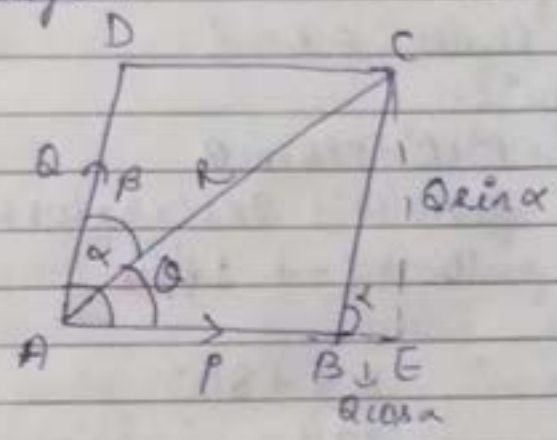 D C
Q β R Q sin α
α θ
α
A P B E
Q cos α